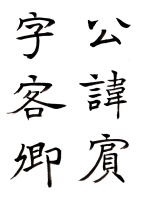 公諱賓
字客卿